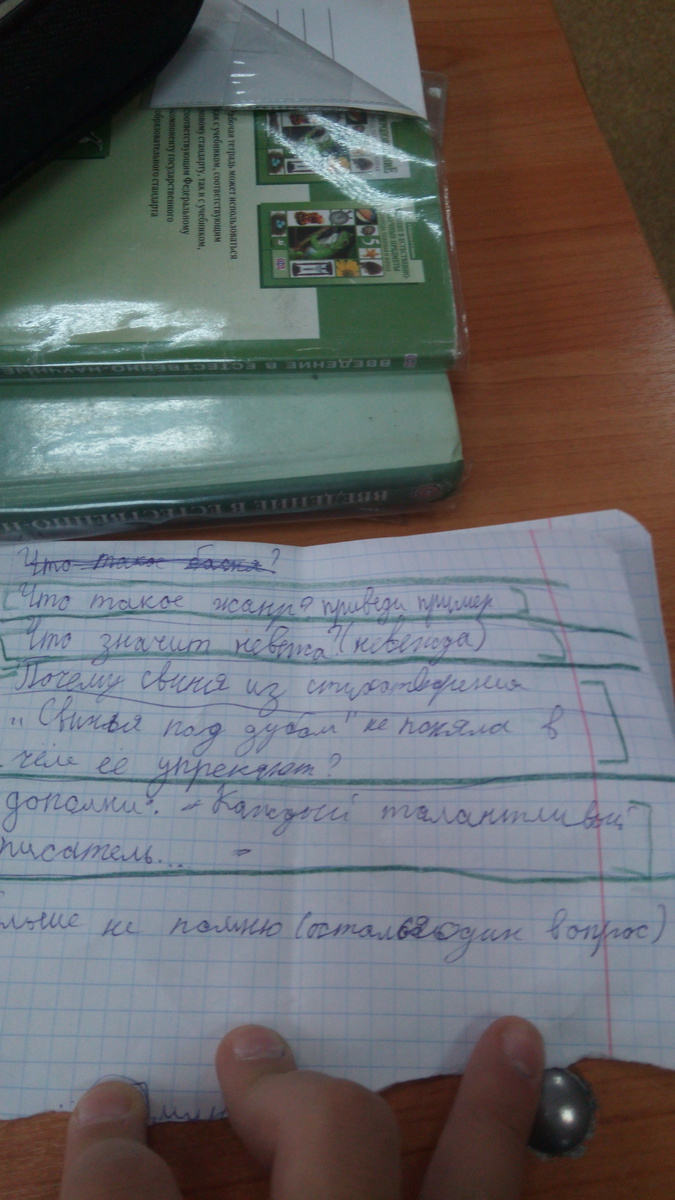 рабочая тетрадь может использоваться
как с учебником, соответствующим
ному стандарту, так и с учебником,
соответствующим Федеральному
компоненту государственного
образовательного стандарта
ВВЕДЕНИЕ В ЕСТЕСТВЕННО-НАУЧНЫЕ
ВВЕДЕНИЕ В ЕСТЕСТВЕННО-Н
Что такое басня?
Что такое жанр? приведи пример
Что значит невежа? (невежда)
Почему свинья из стихотворения
"Свинья под дубом" не поняла в
чём её упрекают?
дополни: - Каждый талантливый
писатель... -
льше не помню (осталься один вопрос)